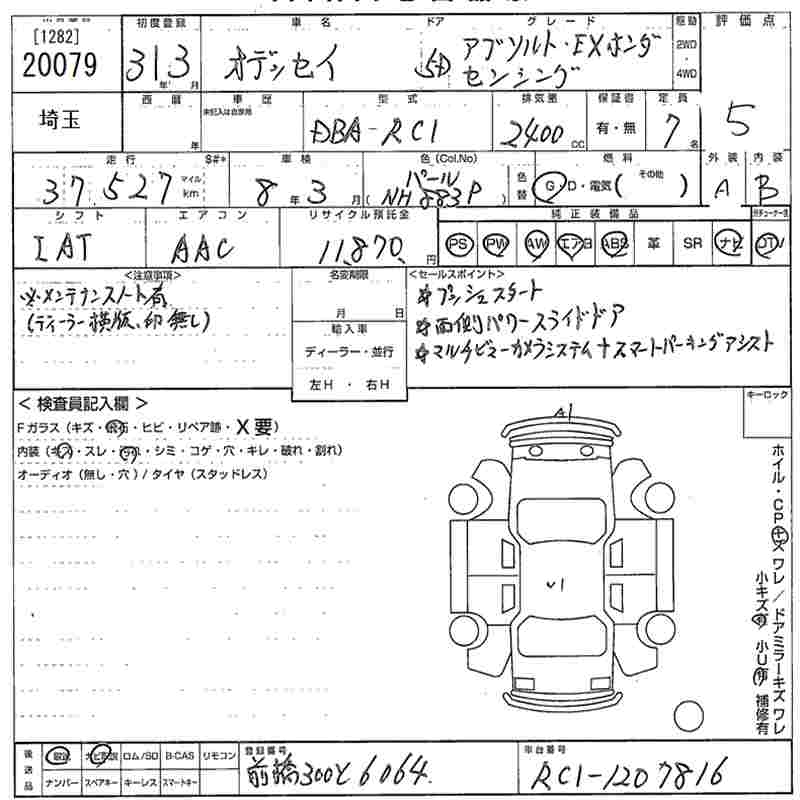 [1282]
20079
初度登録
31年3月
車名
オデッセイ
ドア
5D
グレード
アブソルト・EXホンダ
センシング
駆動
2WD
4WD
評価点
5
埼玉
西暦
年
車歴
未記入は自家用
型式
DBA-RC1
排気量
2400cc
保証書
有・無
定員
7名
走行
37,527
マイル
km
S#*
車検
8年3月
色(Col.No)
パール
(NH883P)
色替
燃料
G・D・電気( その他 )
外装
A
内装
B
シフト
IAT
エアコン
AAC
リサイクル預託金
11,870円
純正装備品
PS PW AW エアB ABS 革 SR ナビ TV
<注意事項>
※メンテナンスノート有
(ディーラー横版、印無し)
名変期限
月 日
輸入車
ディーラー・並行
左H・右H
<セールスポイント>
*プッシュスタート
*両側パワースライドドア
*マルチビューカメラシステム+スマートパーキングアシスト
キーロック
<検査員記入欄>
Fガラス(キズ・飛石・ヒビ・リペア跡・X要)
内装(キズ・スレ・汚れ・シミ・コゲ・穴・キレ・破れ・割れ)
オーディオ(無し・穴)/タイヤ(スタッドレス)
A1
U1
ホイル・CPキズ ワレ/ドアミラーキズ ワレ
小キズ有 小U有 補修有
後送品
取説 ナビ取説 ロム/SD B-CAS リモコン
ナンバー スペアキー キーレス スマートキー
登録番号
前橋300と6064
車台番号
RC1-1207816